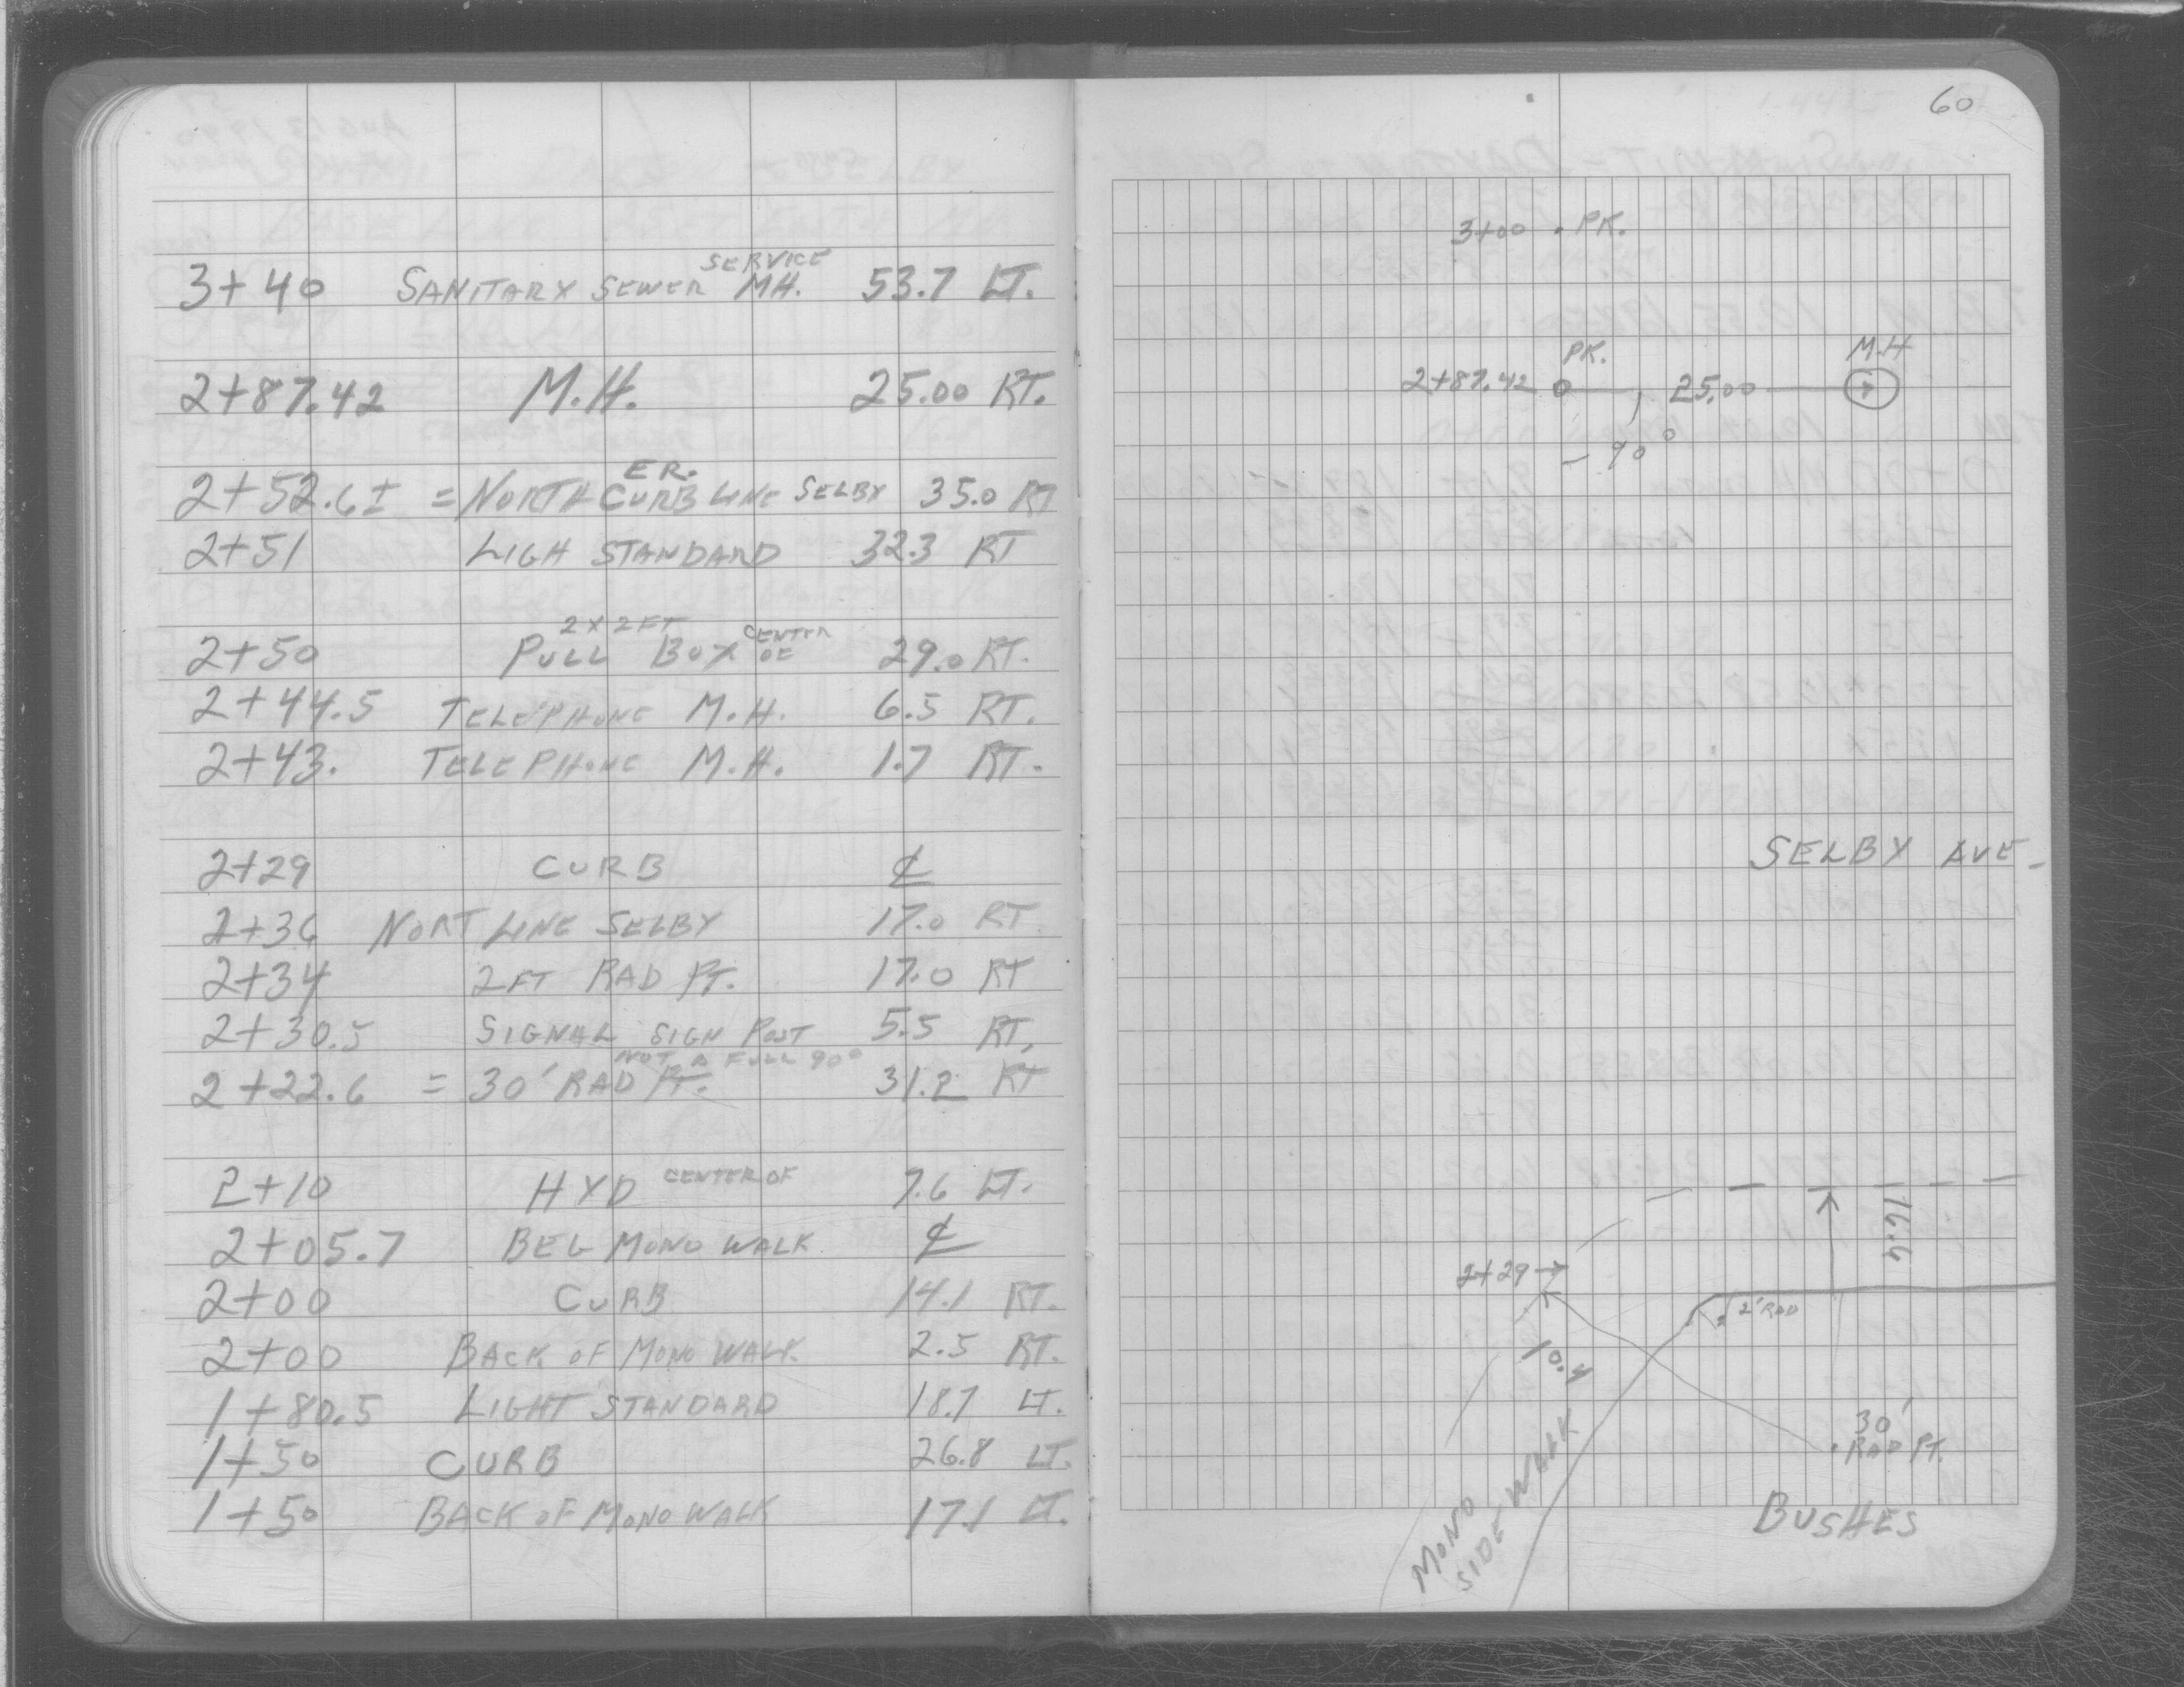 3+40 SANITARY SEWER SERVICE MH. 53.7 LT.
2+87.42 M.H. 25.00 RT.
ER.
2+52.6± = NORTH CURB LINE SELBY 35.0 RT
2+51 LIGH STANDARD 32.3 RT
2 X 2 FT
2+50 PULL BOX CENTER OF 29.0 RT.
2+44.5 TELEPHONE M.H. 6.5 RT.
2+43. TELEPHONE M.H. 1.7 RT.
2+29 CURB ℄
2+36 NORT LINE SELBY 17.0 RT
2+34 2 FT RAD PT. 17.0 RT
2+30.5 SIGNAL SIGN POST 5.5 RT.
NOT A FULL 90°
2+22.6 = 30' RAD PT. 31.2 RT
2+10 HYD CENTER OF 7.6 LT.
2+05.7 BEG MONO WALK ℄
2+00 CURB 14.1 RT.
2+00 BACK OF MONO WALK 2.5 RT.
1+80.5 LIGHT STANDARD 18.7 LT.
1+50 CURB 26.8 LT.
1+50 BACK OF MONO WALK 17.1 LT.
60
3+00 . PK.
PK. M.H
2+87.42 25.00
90°
SELBY AVE.
16.4
2+29
2' RAD
10.4
30'
RAD PT.
MONO
SIDE WALK
BUSHES